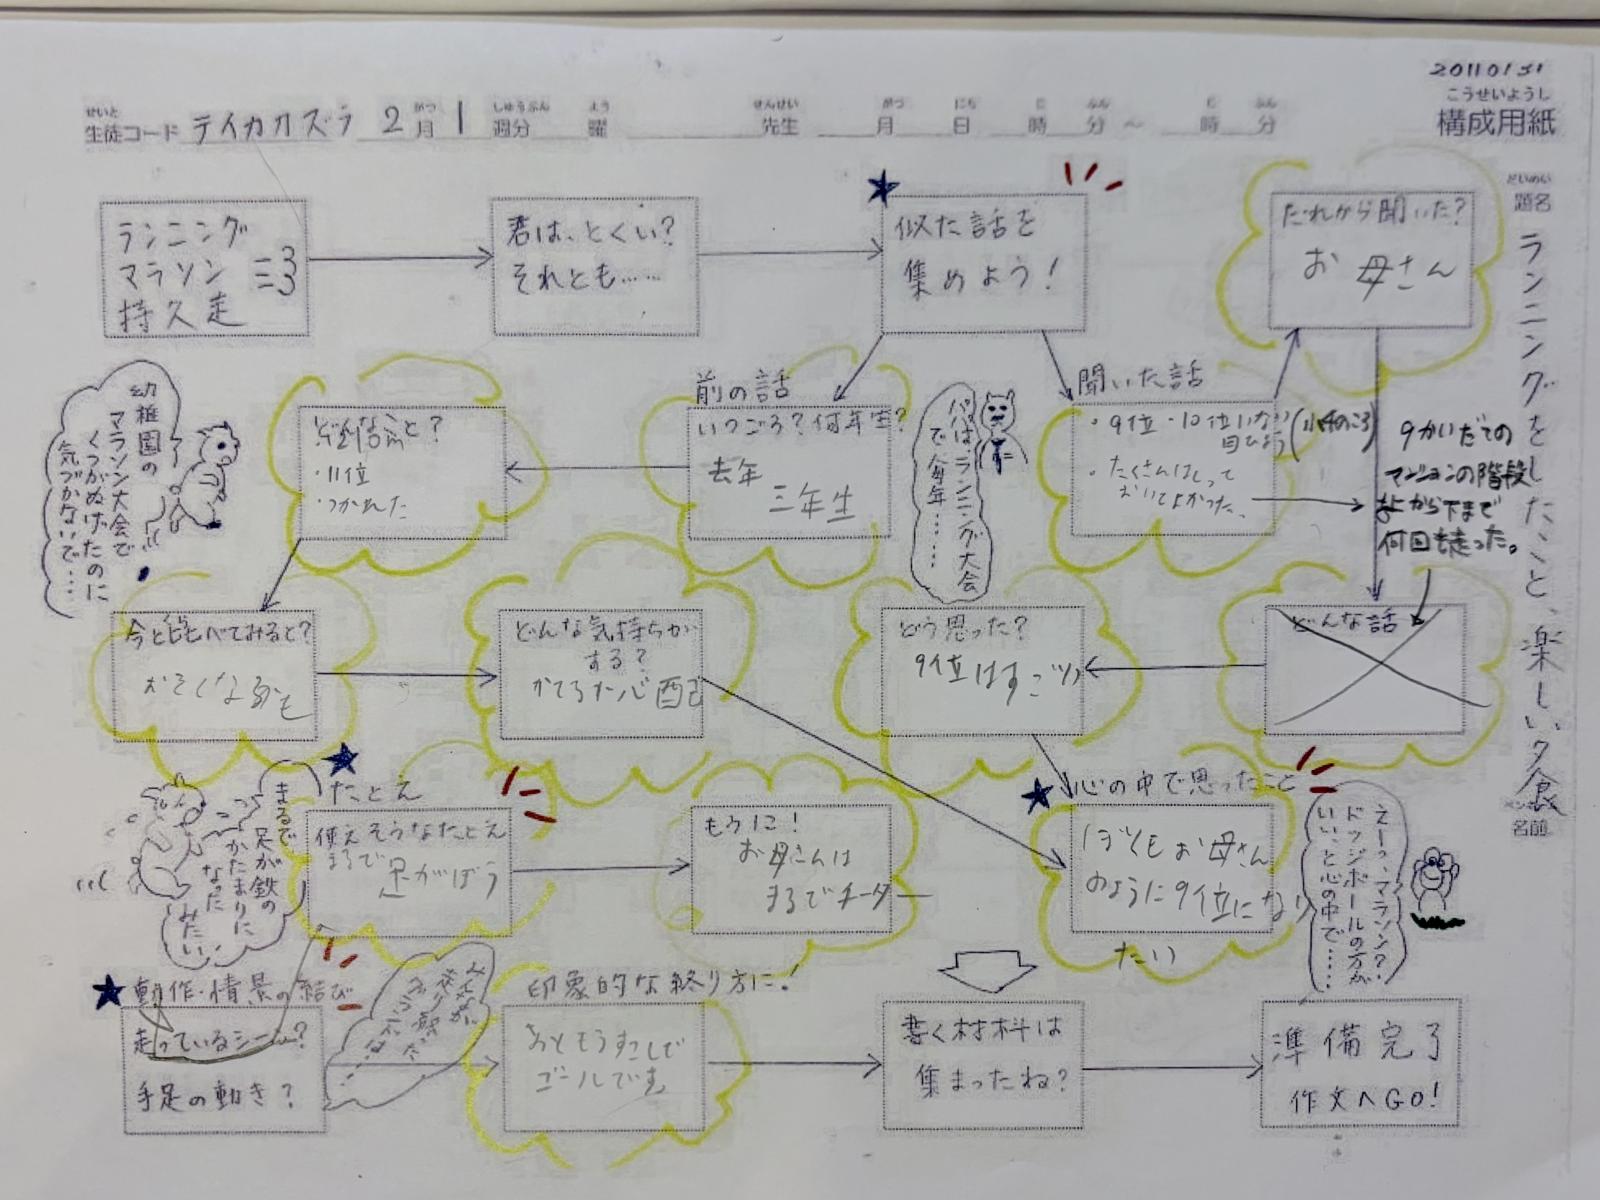 20110131
こうせいようし
構成用紙
せいと
生徒コード テイカカズラ 2月 1週分 曜 先生 月 日 時 分 〜 時 分
だいめい
題名
ランニングをしたこと、楽しい夕食
名前
ランニング
マラソン
持久走
君は、とくい?
それとも……
似た話を
集めよう!
だれから聞いた?
お母さん
幼稚園の
マラソン大会で
くつがぬげたのに
気づかないで…
・11位
・つかれた
前の話
いつごろ?何年生?
去年
三年生
パパはランニング大会
で毎年……
聞いた話
・9位・10位いない
目ひょう(小4のころ)
・たくさんはしって
おいてよかった。
9かいだての
マンションの階段
上から下まで
何回も走った。
今と比べてみると?
おそくなるかも
どんな気持ちが
する?
かてるか心配
どう思った?
9位はすごい
どんな話
まるで
足が鉄の
かたまりに
なった
みたい
たとえ
使えそうなたとえ
まるで
足がぼう
もう一こ!
お母さんは
まるでチーター
心の中で思ったこと
ぼくもお母さん
のように9位になり
たい
えーっ、マラソン?
ドッジボールの方が
いい、と心の中で……
動作・情景の結び
走っているシーン?
手足の動き?
印象的な終り方に!
あともうすこしで
ゴールです
書く材料は
集まったね?
準備完了
作文へGO!